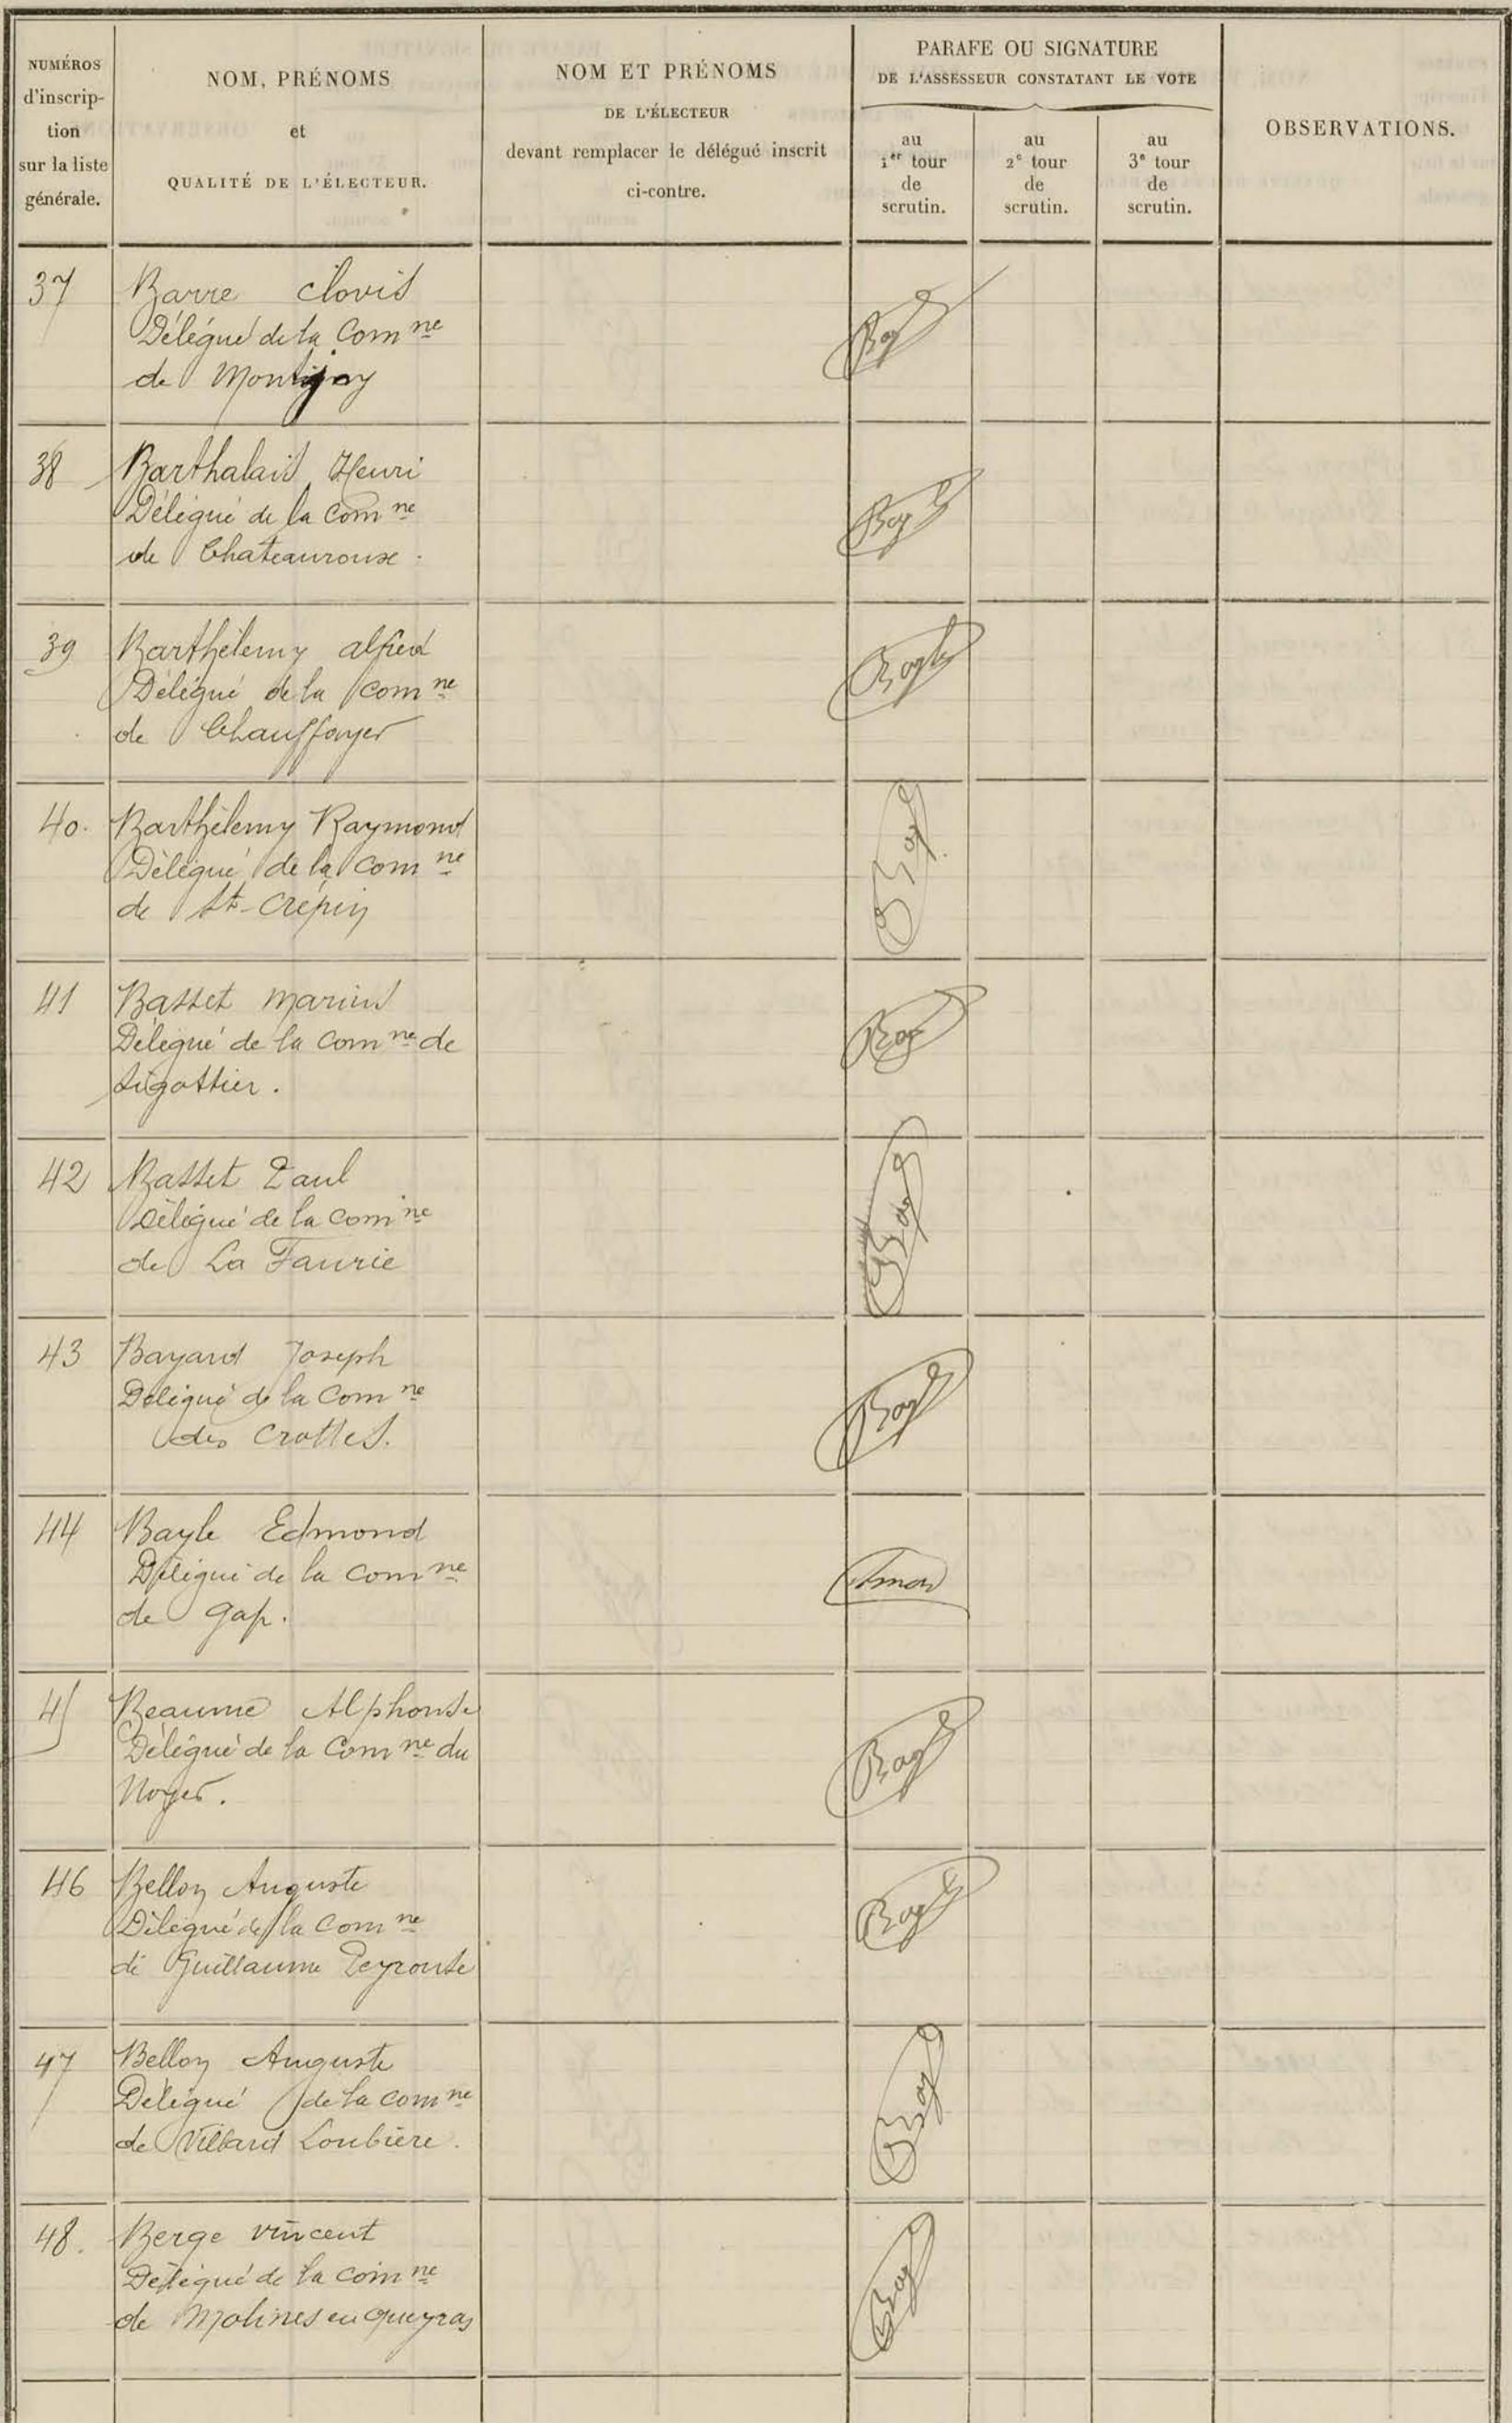 NUMÉROS
d'inscrip-
tion
sur la liste
générale.
NOM, PRÉNOMS
et
QUALITÉ DE L'ÉLECTEUR.
NOM ET PRÉNOMS
DE L'ÉLECTEUR
devant remplacer le délégué inscrit
ci-contre.
PARAFE OU SIGNATURE
DE L'ASSESSEUR CONSTATANT LE VOTE
au
1er tour
de
scrutin.
au
2e tour
de
scrutin.
au
3e tour
de
scrutin.
OBSERVATIONS.
37 Barre Clovis
Délégué de la Comne
de Montjay
38 Barthalais Henri
Délégué de la Comne
de Chateauroux.
39 Barthélemy alfred
Délégué de la Comne
de Chauffayer
40. Barthélemy Raymond
Délégué de la Comne
de St-Crépin
41 Basset Marius
Délégué de la Comne de
Sigottier.
42 Basset Paul
Délégué de la Comne
de La Faurie
43 Bayard Joseph
Délégué de la Comne
des Crottes.
44 Bayle Edmond
Délégué de la Comne
de Gap.
45 Beaume Alphonse
Délégué de la Comne du
Noyer.
46 Bellon Auguste
Délégué de la Comne
de Guillaume Peyrouse
47 Bellon Auguste
Délégué de la Comne
de Villard Loubière.
48. Berge Vincent
Délégué de la Comne
de Molines en queyras